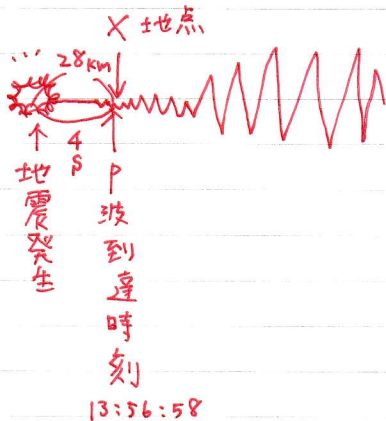 X 地点
28km
4
S
地震発生
P波到達時刻
13:56:58